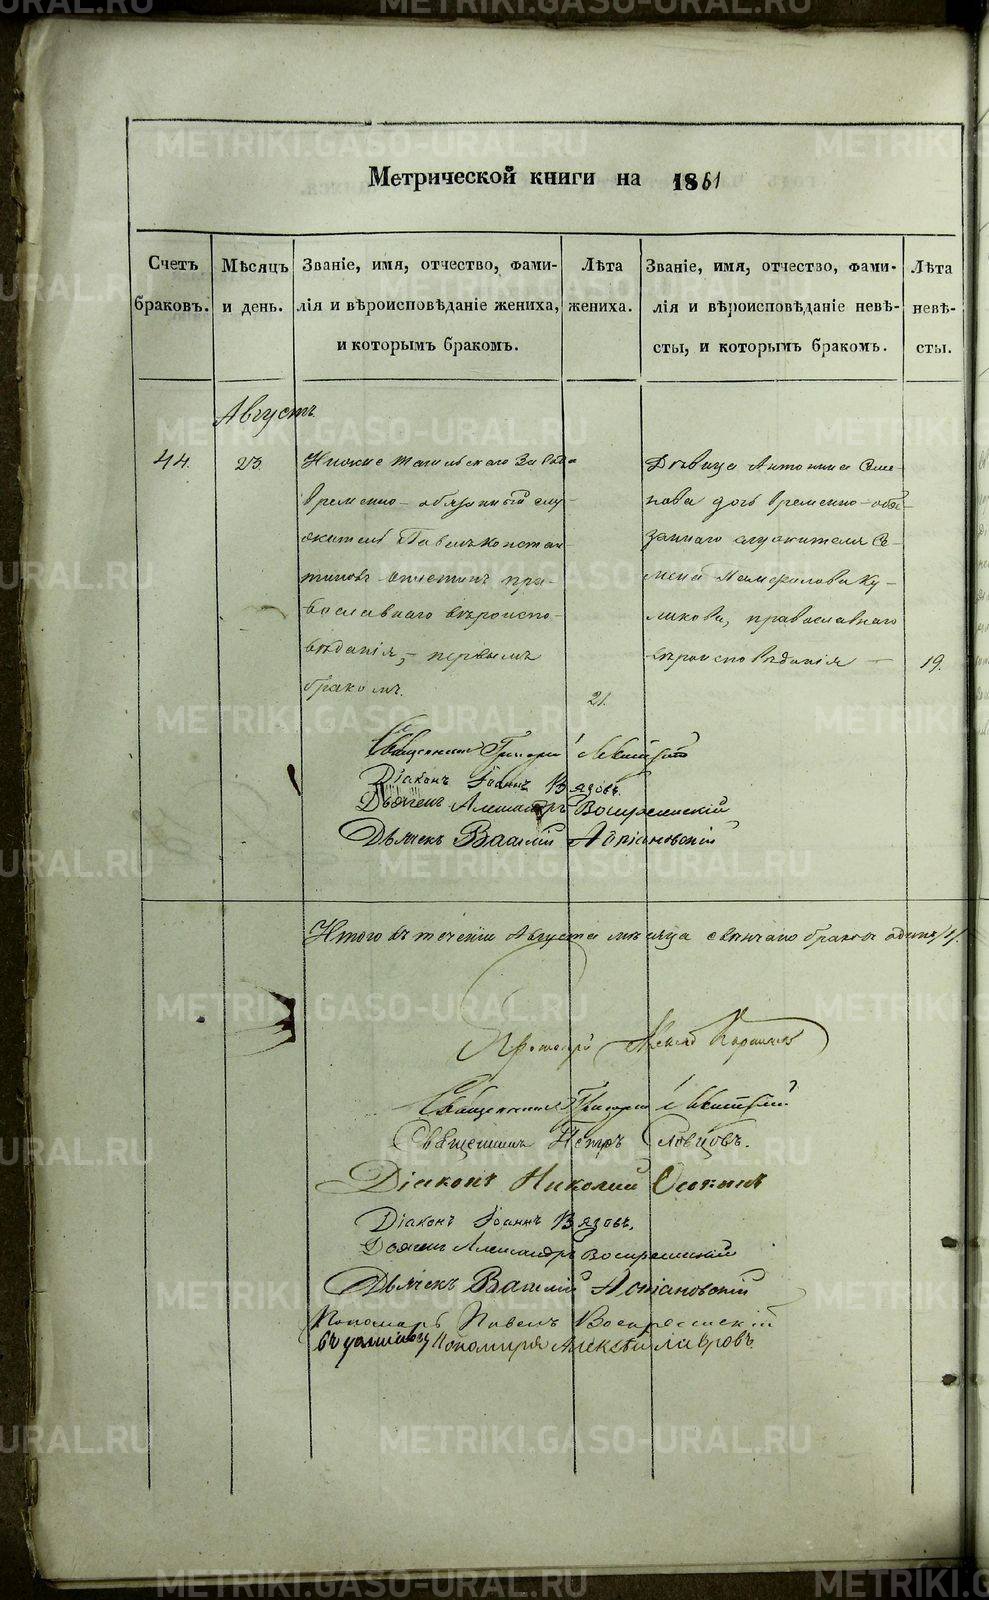 Метрической книги на 1861
Счетъ браковъ.
Мѣсяцъ и день.
Званіе, имя, отчество, фами-
лія и вѣроисповѣданіе жениха,
и которымъ бракомъ.
Лѣта жениха.
Званіе, имя, отчество, фами-
лія и вѣроисповѣданіе невѣ-
сты, и которымъ бракомъ.
Лѣта невѣ-
сты.
Августъ.
44.
23.
Нижне Тагильскаго Заво
временно-обязанный слу-
житель Павелъ Констан-
тиновъ
православнаго вѣроиспо-
вѣданія, - первымъ
бракомъ.
21.
Дѣвица Антонина Семе-
нова дочь временно-обя-
заннаго служителя Се-
мена Куликова, православнаго
вѣроисповѣданія —
19.
Священникъ Григорій
Діаконъ Іоаннъ Вязовъ.
Дьячекъ Александръ Воскресенскій
Дьячекъ Василій
Итого въ теченіи Августа мѣсяца свѣнчано бракъ одинъ /1/.
Протоіерей
Священникъ Григорій
Священникъ Петръ Словцовъ.
Діаконъ Николай
Діаконъ Іоаннъ Вязовъ.
Дьячекъ Александръ Воскресенскій
Дьячекъ Василій
Пономарь Павелъ Воскресенскій
Въ должности Пономаря Алексѣй Лавровъ.
METRIKI.GASO-URAL.RU